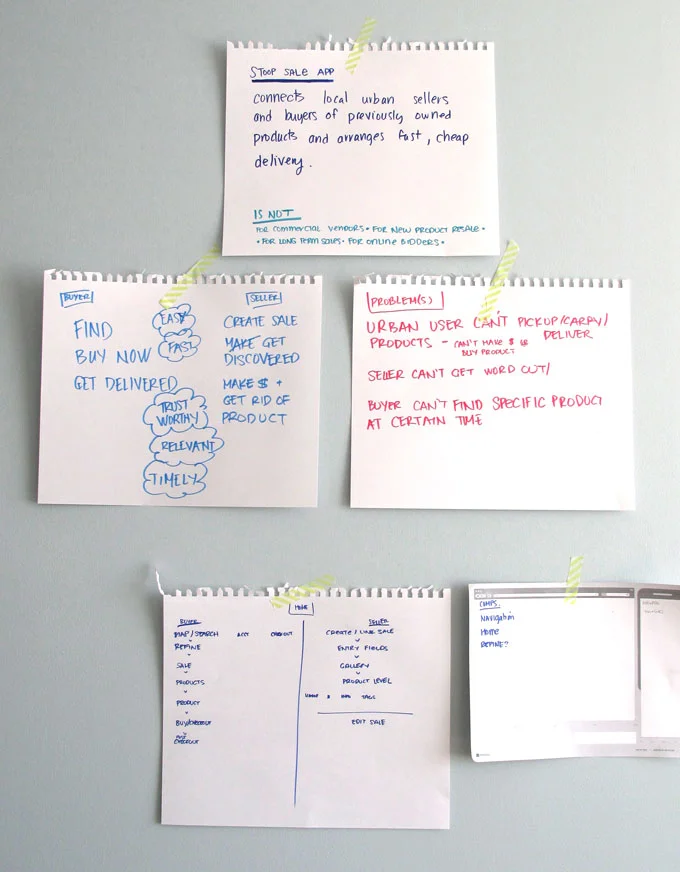 STOOP SALE APP
connects local urban sellers
and buyers of previously owned
products and arranges fast, cheap
delivery.
IS NOT
FOR COMMERCIAL VENDORS • FOR NEW PRODUCT RESALE •
• FOR LONG TERM SALES • FOR ONLINE BIDDERS •
BUYER
FIND
BUY NOW
GET DELIVERED
EASY
FAST
TRUST
WORTHY
RELEVANT
TIMELY
SELLER
CREATE SALE
MAKE GET
DISCOVERED
MAKE $ +
GET RID OF
PRODUCT
PROBLEM(S)
URBAN USER CAN'T PICKUP/CARRY/
DELIVER
PRODUCTS - CAN'T MAKE $
BUY PRODUCT
SELLER CAN'T GET WORD OUT/
BUYER CAN'T FIND SPECIFIC PRODUCT
AT CERTAIN TIME
HOME
BUYER
MAP/SEARCH ACCT CHECKOUT
REFINE
SALE
PRODUCTS
PRODUCT
BUY/CHECKOUT
CHECKOUT
SELLER
CREATE/LINK SALE
ENTRY FIELDS
GALLERY
PRODUCT LEVEL
$ INFO TAGS
EDIT SALE
COMPS.
Navigation
Home
REFINE?